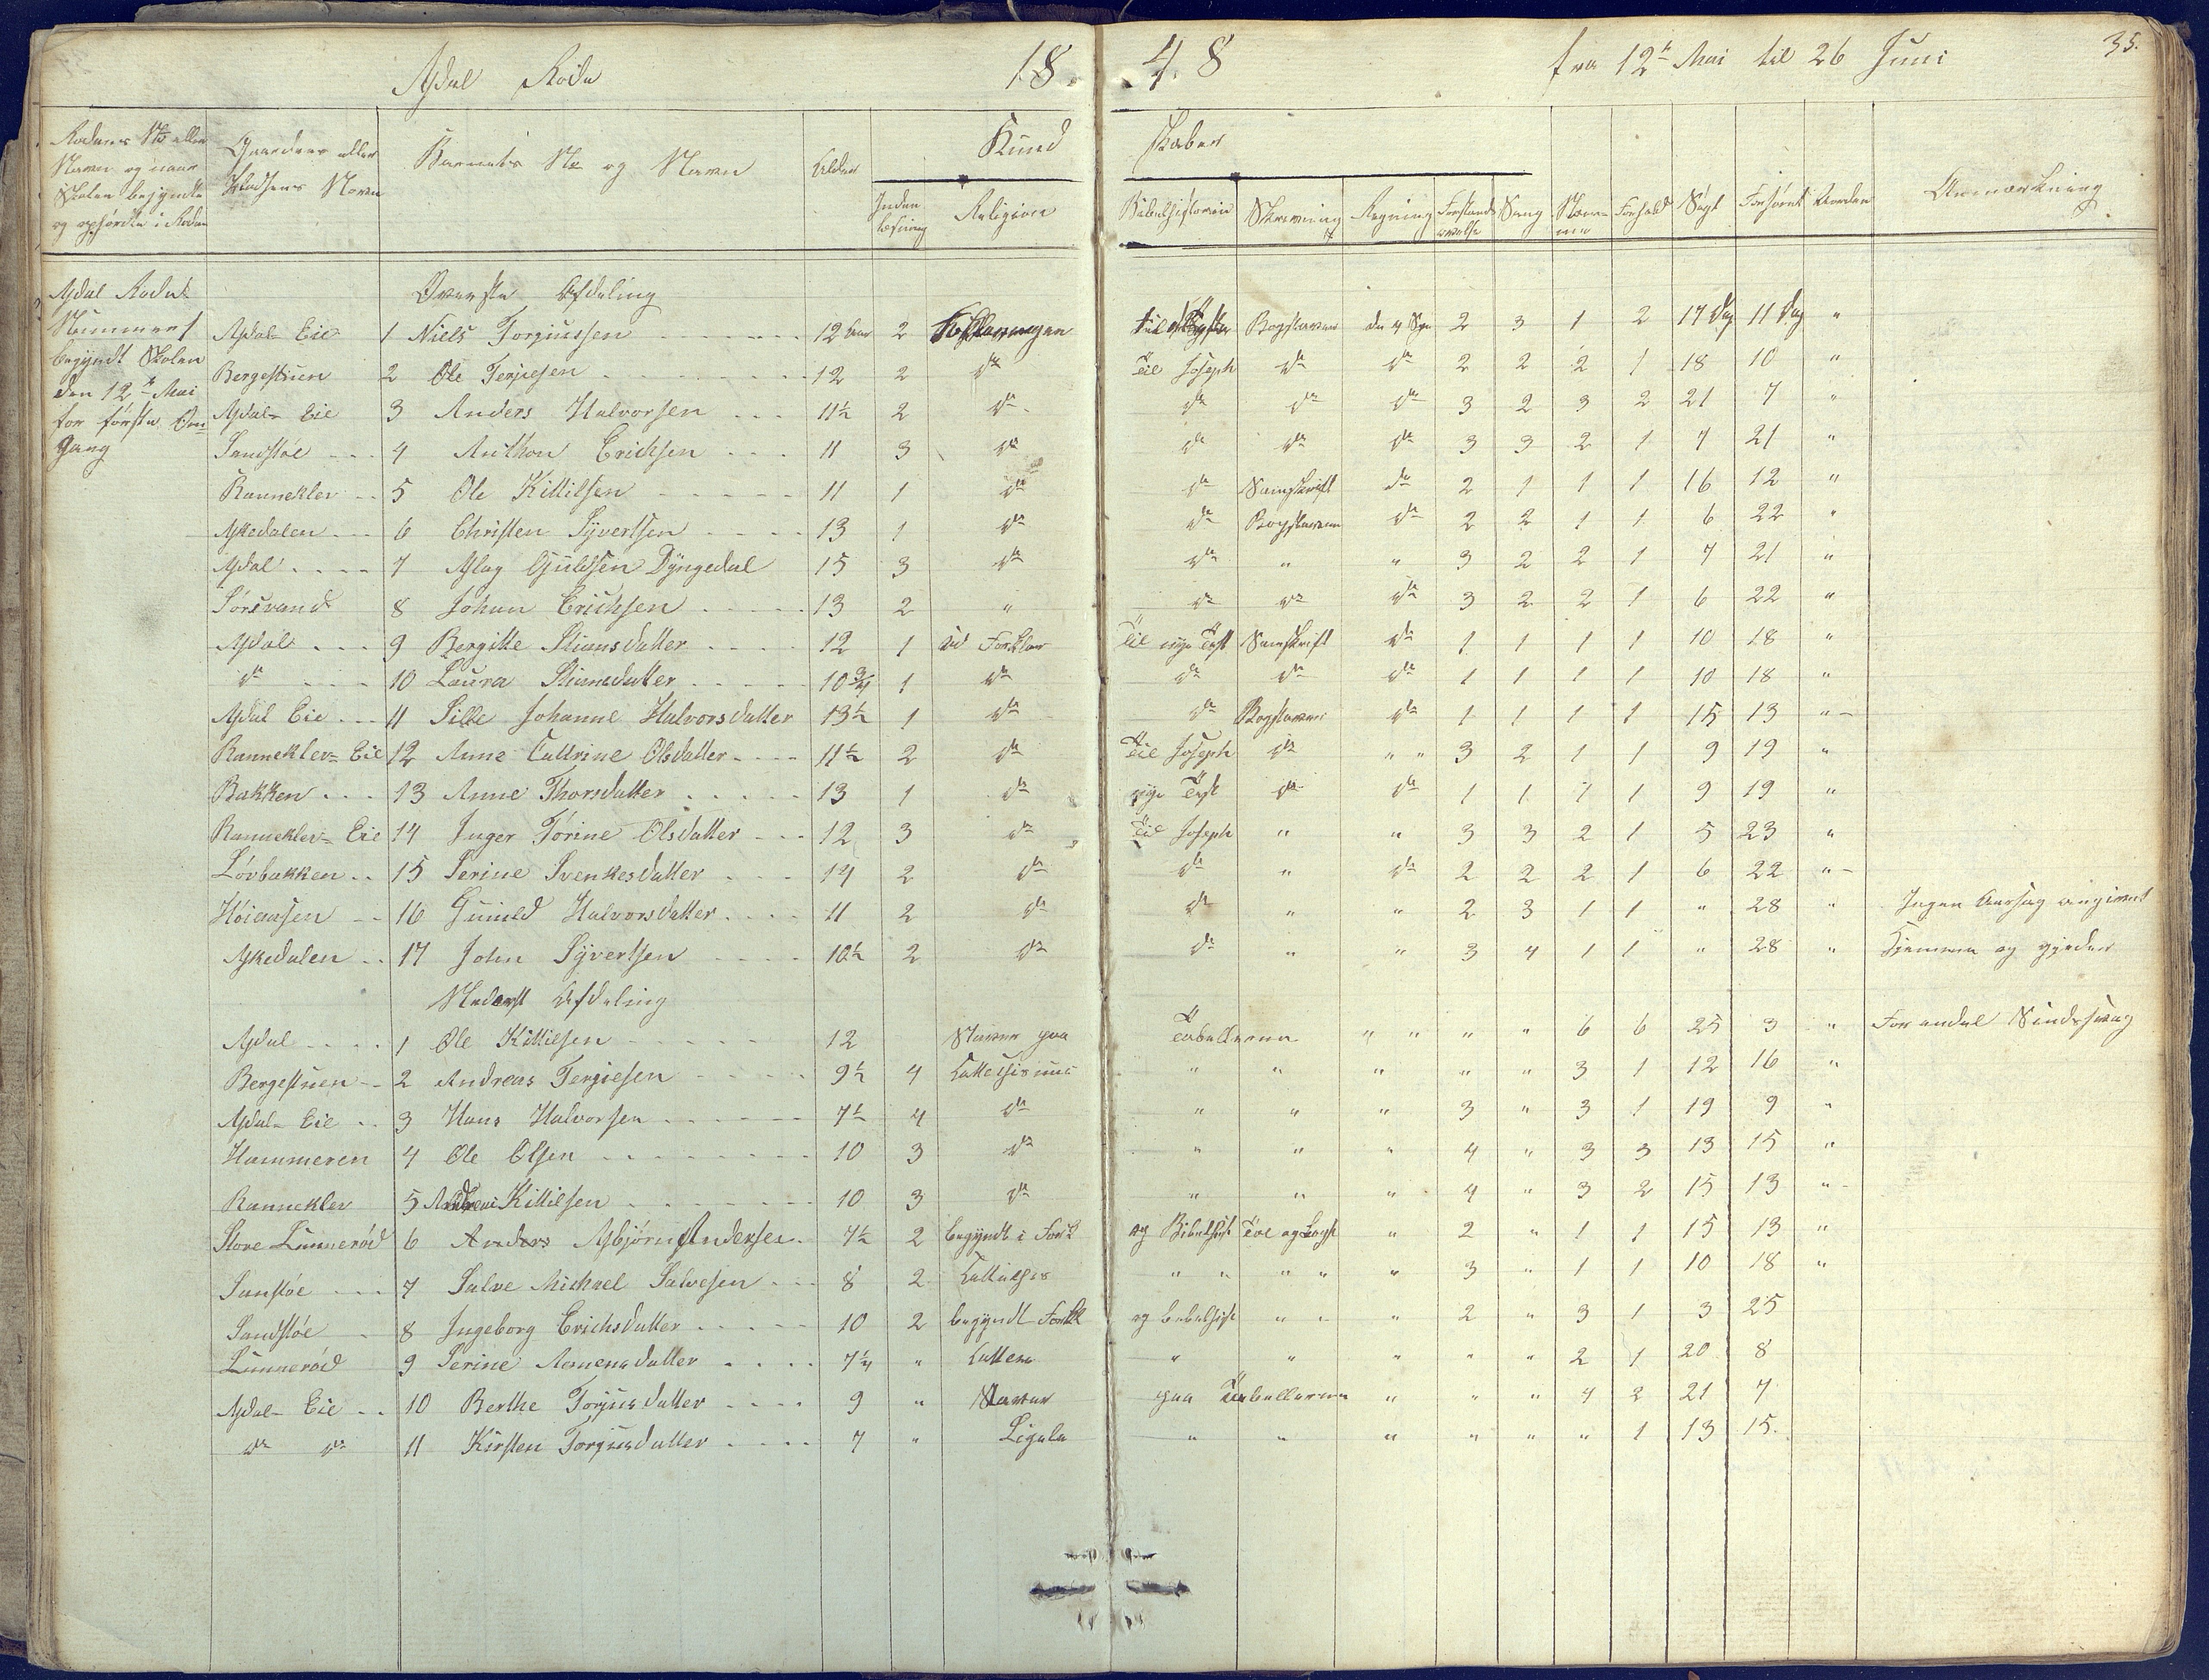 Asdal Rode 1848 fra 12te Mai til 26 Juni 35.
Rodens No eller Navn og naar Skolen begyndte og ophørdte i Roden
Gaardens eller Pladsens Navn
Barnets No og Navn
Alder
Kundskaber
Inden læsning
Religion
Bibelhistorien
Skrivning
Regning
Forstands øvelse
Sang
Næmme
Forhold
Søgt
Forsømt
Anmærkning
Asdal Rode
Nummer 1
begyndt Skolen
den 12te Mai
for første Om
gang
Øverste Afdeling
Asdal Eie 1 Niels Torgiussen 12 Aar 2 Forklaringen Bogstaver de 4 Spe 2 3 1 2 17 Dag 11 Dag "
Bergestuen 2 Ole Terjesen 12 2 do Til Joseph do do 2 2 2 1 18 10 "
Asdal Eie 3 Anders Halvorsen 11½ 2 do do do do 3 2 3 2 21 7 "
Sandstøe 4 Anthon Erichsen 11 3 do do do do 3 3 2 1 7 21 "
Rannekler 5 Ole Kittilsen 11 1 do do Samskrift do 2 1 1 1 16 12 "
Askedalen 6 Christen Syvertsen 13 1 do do Bogstaver do 2 2 1 1 6 22 "
Asdal 7 Aslag Guldsen Dyngedal 15 3 do do " " 3 2 2 1 7 21 "
Sørsvand 8 Johan Erichsen 13 2 " do do do 3 2 2 1 6 22 "
Asdal 9 Bergitte Stiansdatter 12 1 ud Forklar Til nye Test Samskrift do 1 1 1 1 10 18 "
do 10 Laura Stiansdatter 10¾ 1 do do do do 1 1 1 1 10 18 "
Asdal Eie 11 Sille Johanne Halvorsdatter 13½ 1 do do Bogstaver do 1 1 1 1 15 13 "
Rannekler Eie 12 Anne Cattrine Olsdatter 11½ 2 do Til Joseph do " " 3 2 1 1 9 19 "
Bakken 13 Anne Thorsdatter 13 1 do nye Test do do 1 1 1 1 9 19 "
Rannekler Eie 14 Inger Tørine Olsdatter 12 3 do Til Joseph " " 3 3 2 1 5 23 "
Løvbakken 15 Serine Svenkesdatter 14 2 do do " do 2 2 2 1 6 22 "
Høiaasen 16 Gunild Halvorsdatter 11 2 do do " " 2 3 1 1 " 28 " Ingen Aarsag angivet
Askedalen 17 John Syvertsen 10½ 2 do do " " 3 4 1 1 " 28 " Hjemme og gjeder
Nederst Afdeling
Asdal 1 Ole Kittilsen 12 Staver paa Tabellerne " " " " 6 6 25 3 " Sindssvag
Bergestuen 2 Andreas Terjesen 9½ 4 " " " " " 3 1 12 16 "
Asdal Eie 3 Hans Halvorsen 7½ 4 do " " " 3 " 3 1 19 9 "
Hammeren 4 Ole Olsen 10 3 do " " " 4 " 3 3 13 15 "
Rannekler 5 Kittilsen 10 3 do " " " 4 " 3 2 15 13 "
Store Lunnerød 6 Anders Asbjørn Andersen 7½ 2 begyndt i Fork og Bibelhist " 2 " 1 1 15 13 "
Sanstøe 7 Salve Michael Salvesen 8 2 " " " " " 3 " 1 1 10 18 "
Sandstøe 8 Ingeborg Erichsdatter 10 2 begyndt Fork og bibelhist " " " 2 " 3 1 3 25
Lunnerød 9 Serine 7¼ " " " " " " 2 1 20 8
Asdal Eie 10 Berthe Torjusdatter 9 " Staver paa Tabellerne " " " 4 2 21 7
do do 11 Kirsten Torgiusdatter 7 " Ligele " " " " " " 1 13 15.